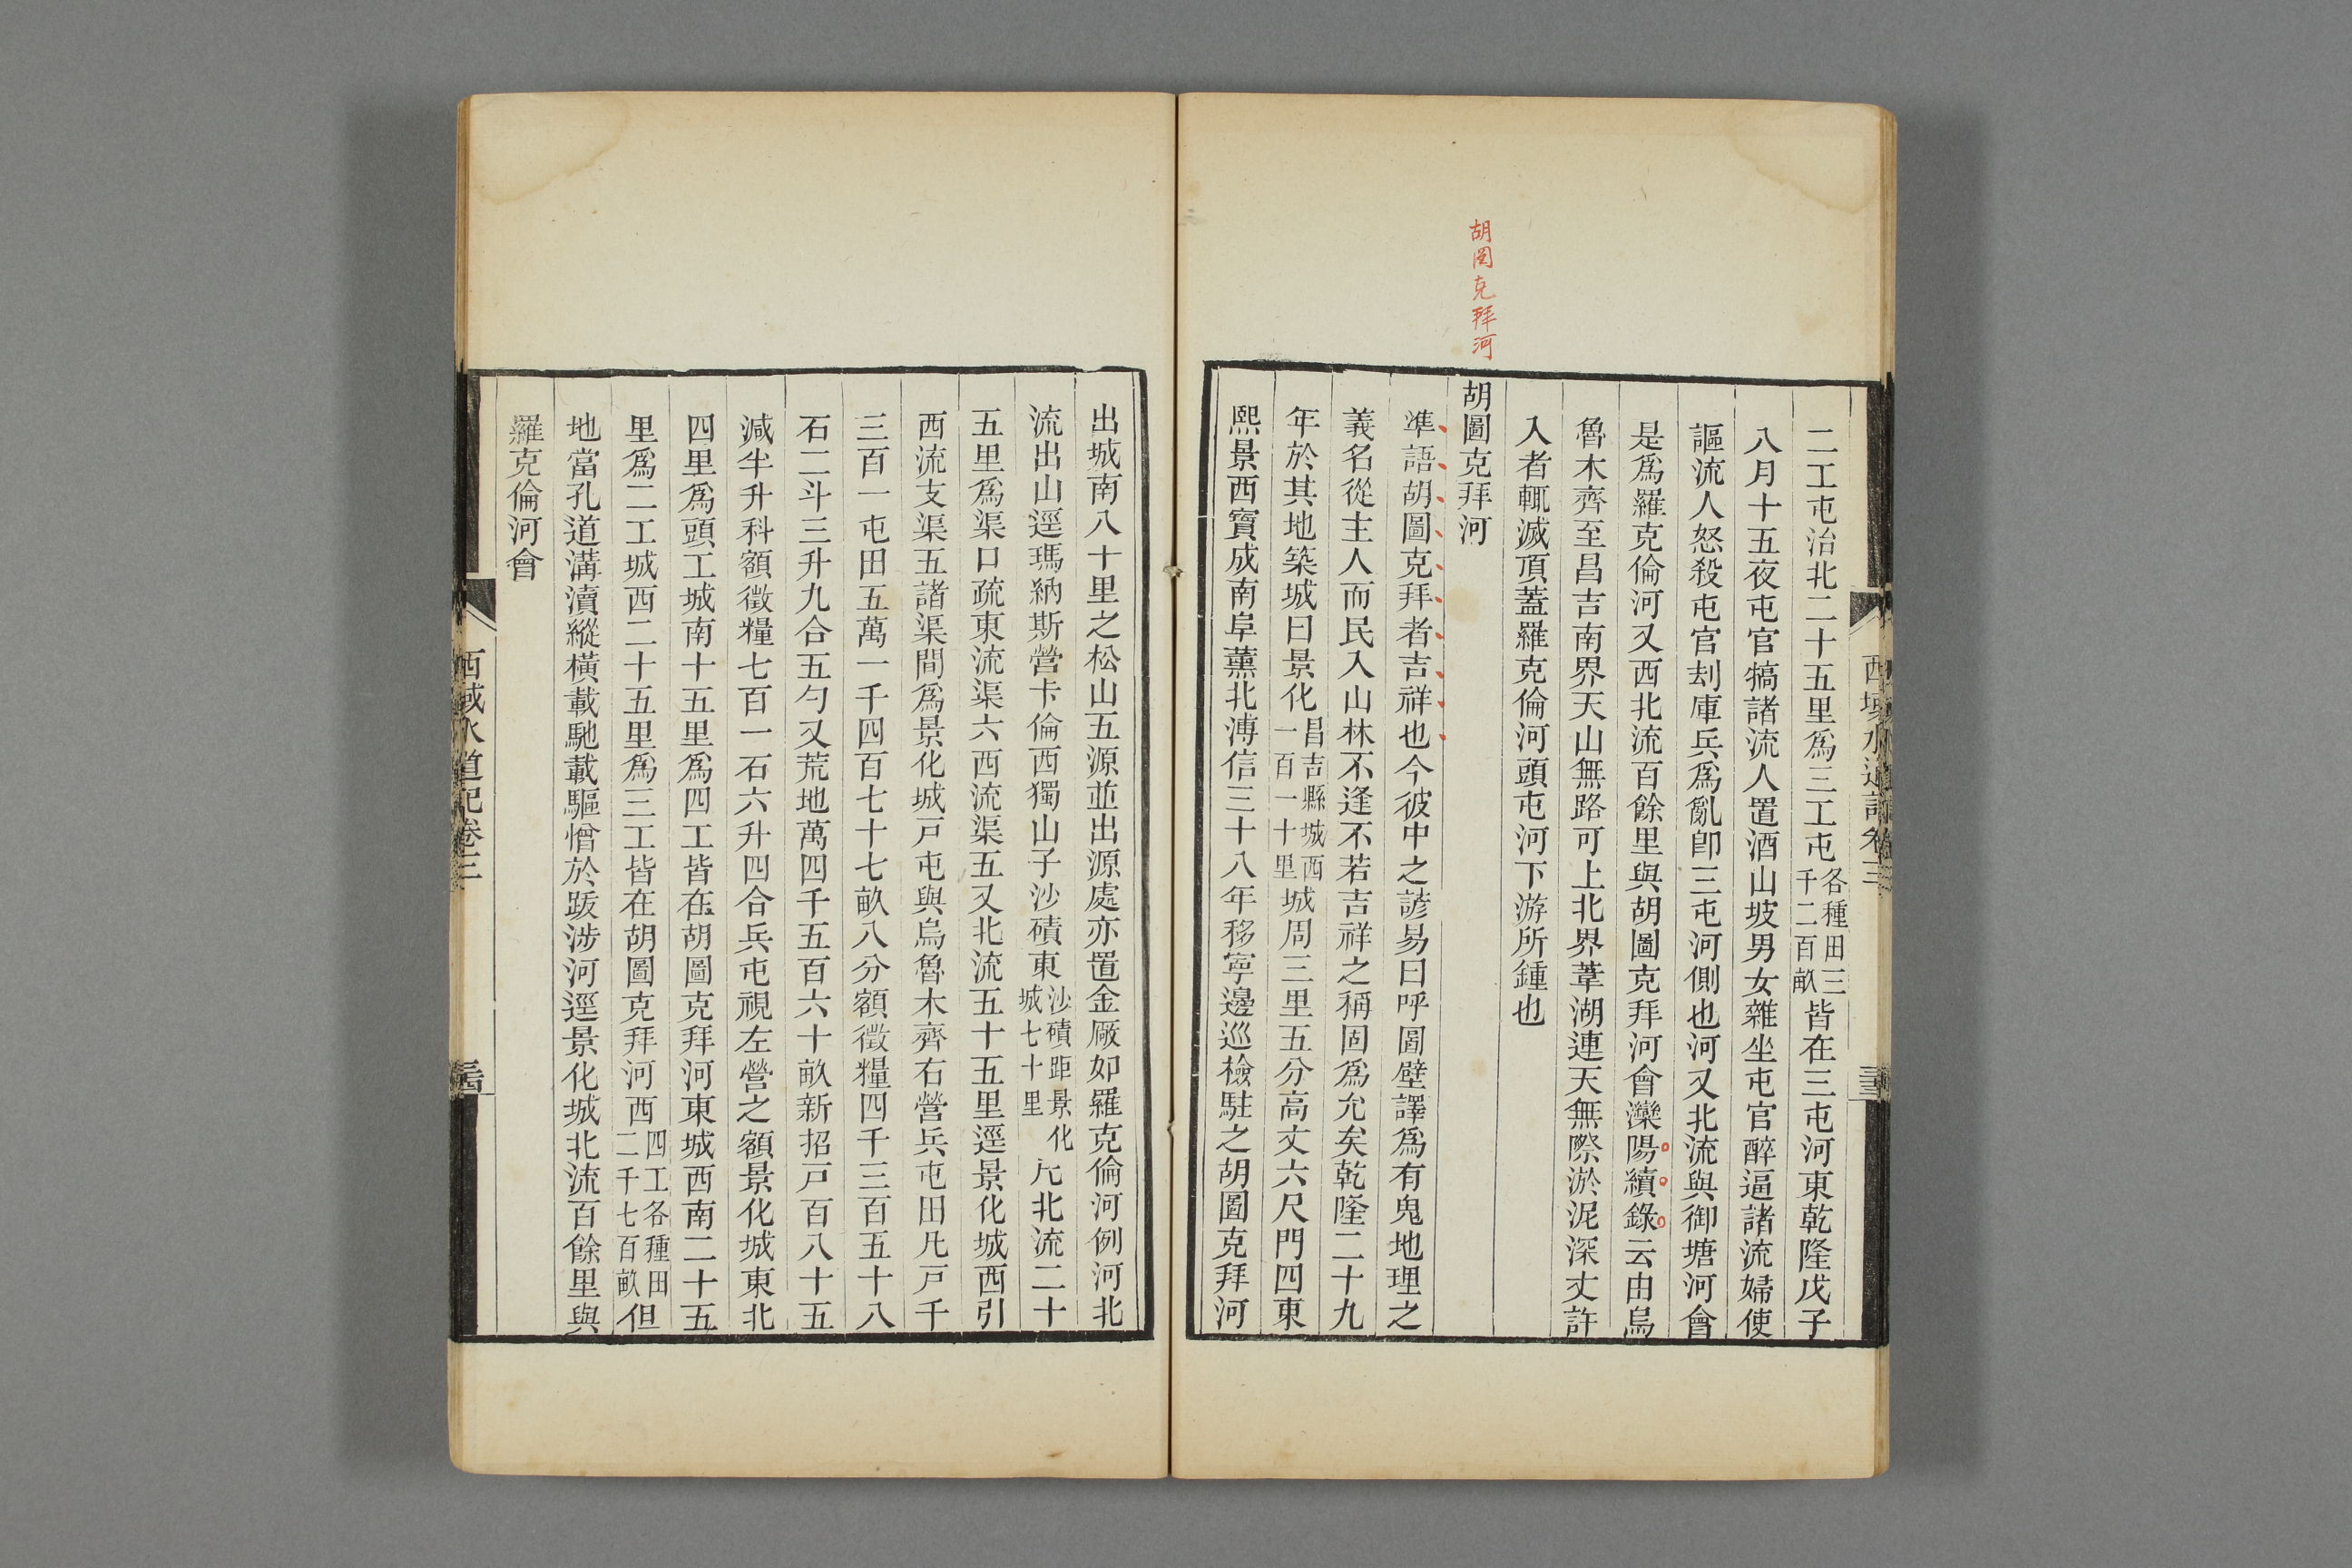 胡图克拜河
二工屯治北二十五里爲三工屯各種田三千二百畝皆在三屯河東乾隆戊子
八月十五夜屯官犒諸流人置酒山坡男女雜坐屯官醉逼諸流婦使
謳流人怒殺屯官刦庫兵爲亂卽三屯河側也河又北流與御塘河會
是爲羅克倫河又西北流百餘里與胡圖克拜河會灤陽續錄云由烏
魯木齊至昌吉南界天山無路可上北界葦湖連天無際淤泥深丈許
入者輒滅頂蓋羅克倫河頭屯河下游所鍾也
胡圖克拜河
準語胡圖克拜者吉祥也今彼中之諺易曰呼圖壁譯爲有鬼地理之
義名從主人而民入山林不逢不若吉祥之稱固爲允矣乾隆二十九
年於其地築城曰景化昌吉縣城西一百一十里城周三里五分高丈六尺門四東
熙景西寶成南阜薰北溥信三十八年移寧邊巡檢駐之胡圖克拜河
西域水道記卷三
出城南八十里之松山五源並出源處亦置金厰如羅克倫河例河北
流出山逕瑪納斯營卡倫西獨山子沙磧東沙磧距景化城七十里凡北流二十
五里爲渠口疏東流渠六西流渠五又北流五十五里逕景化城西引
西流支渠五諸渠間爲景化城戸屯與烏魯木齊右營兵屯田凡戸千
三百一屯田五萬一千四百七十七畝八分額徵糧四千三百五十八
石二斗三升九合五勺又荒地萬四千五百六十畝新招戸百八十五
減半升科額徵糧七百一石六升四合兵屯視左營之額景化城東北
四里爲頭工城南十五里爲四工皆在胡圖克拜河東城西南二十五
里爲二工城西二十五里爲三工皆在胡圖克拜河西四工各種田二千七百畝但
地當孔道溝瀆縱橫載馳載驅憎於跋涉河逕景化城北流百餘里與
羅克倫河會
西域水道記卷三